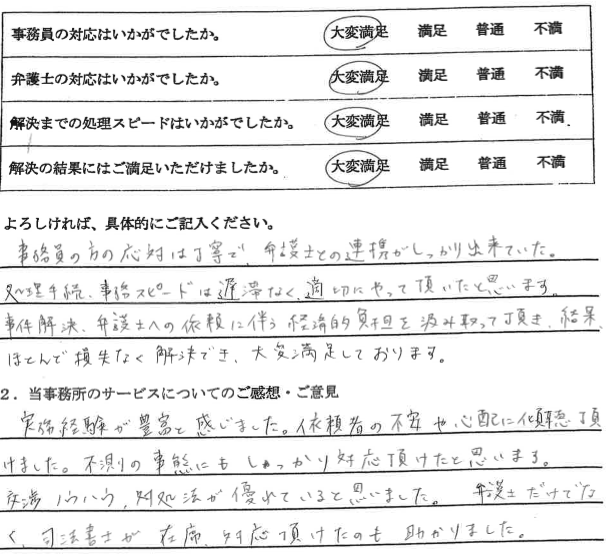 事務員の対応はいかがでしたか。 大変満足 満足 普通 不満
弁護士の対応はいかがでしたか。 大変満足 満足 普通 不満
解決までの処理スピードはいかがでしたか。 大変満足 満足 普通 不満
解決の結果にはご満足いただけましたか。 大変満足 満足 普通 不満
よろしければ、具体的にご記入ください。
事務員の方の応対は丁寧で、弁護士との連携がしっかり出来ていた。
処理手続、事務スピードは遅滞なく、適切にやって頂いたと思います。
事件解決、弁護士への依頼に伴う経済的負担を汲み取って頂き、結果、
ほとんで損失なく解決でき、大変満足しております。
2．当事務所のサービスについてのご感想・ご意見
実務経験が豊富と感じました。依頼者の不安や心配に傾聴頂
けました。不測りの事態にもしっかり対応頂けたと思いまる。
交渉ノウハウ、対処法が優れていると思いました。弁護士だけでな
く、司法書士が在席、対応頂けたのも助かりました。